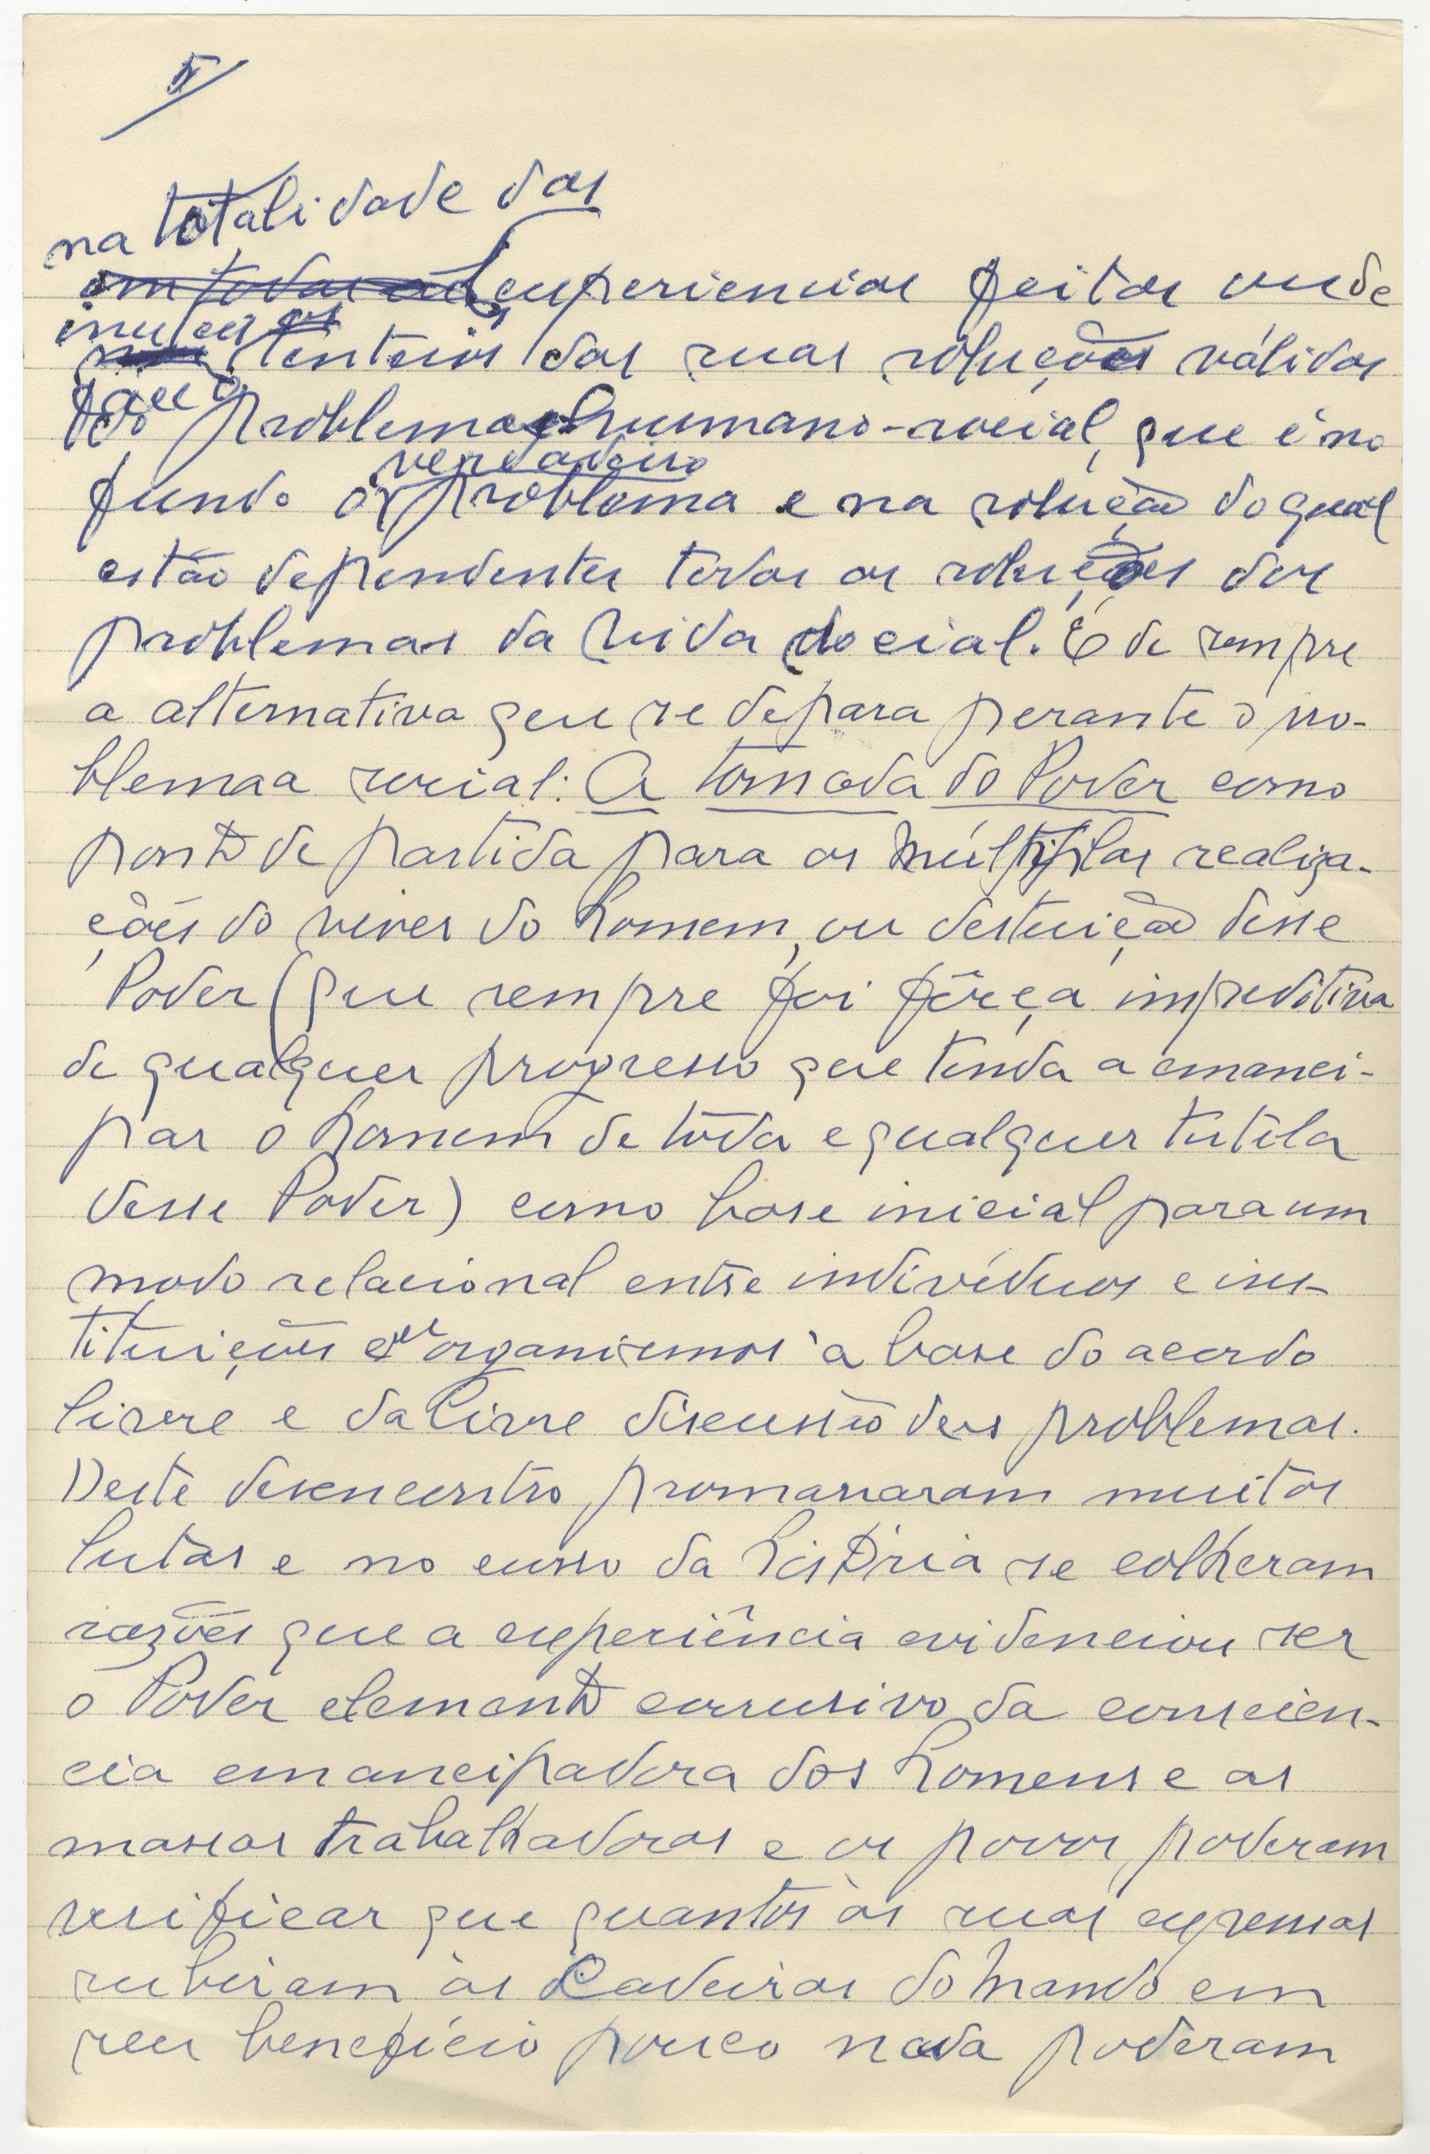 na totalidade das
experiencias feitas onde
tenteios das suas soluções válidas
para o problema humano-social, que é no
fundo o verdadeiro problema e na solução do qual
estão dependentes todas as soluções dos
problemas da vida social. É de sempre
a alternativa que se depara perante o pro-
blemaa social: A tomada do Poder como
ponto de partida para as múltiplas realiza-
ções do viver do homem, ou destruição desse
Poder (que sempre foi fôrça impeditiva
de qualquer progresso que tenda a emanci-
par o homem de tôda e qualquer tutela
desse Poder) como base inicial para um
modo relacional entre indivíduos e ins-
tituições ou organismos à base do acordo
livre e da livre discussão dos problemas.
Deste desencontro promanaram muitas
lutas e no curso da história se colheram
razões que a experiência evidenciou ser
o Poder elemento corrusivo da consciên-
cia emancipadora dos homens e as
massas trabalhadoras e os povos, poderam
verificar que quantos às suas expensas
subiram às Cadeiras do Mando em
seu benefício pouco nada poderam